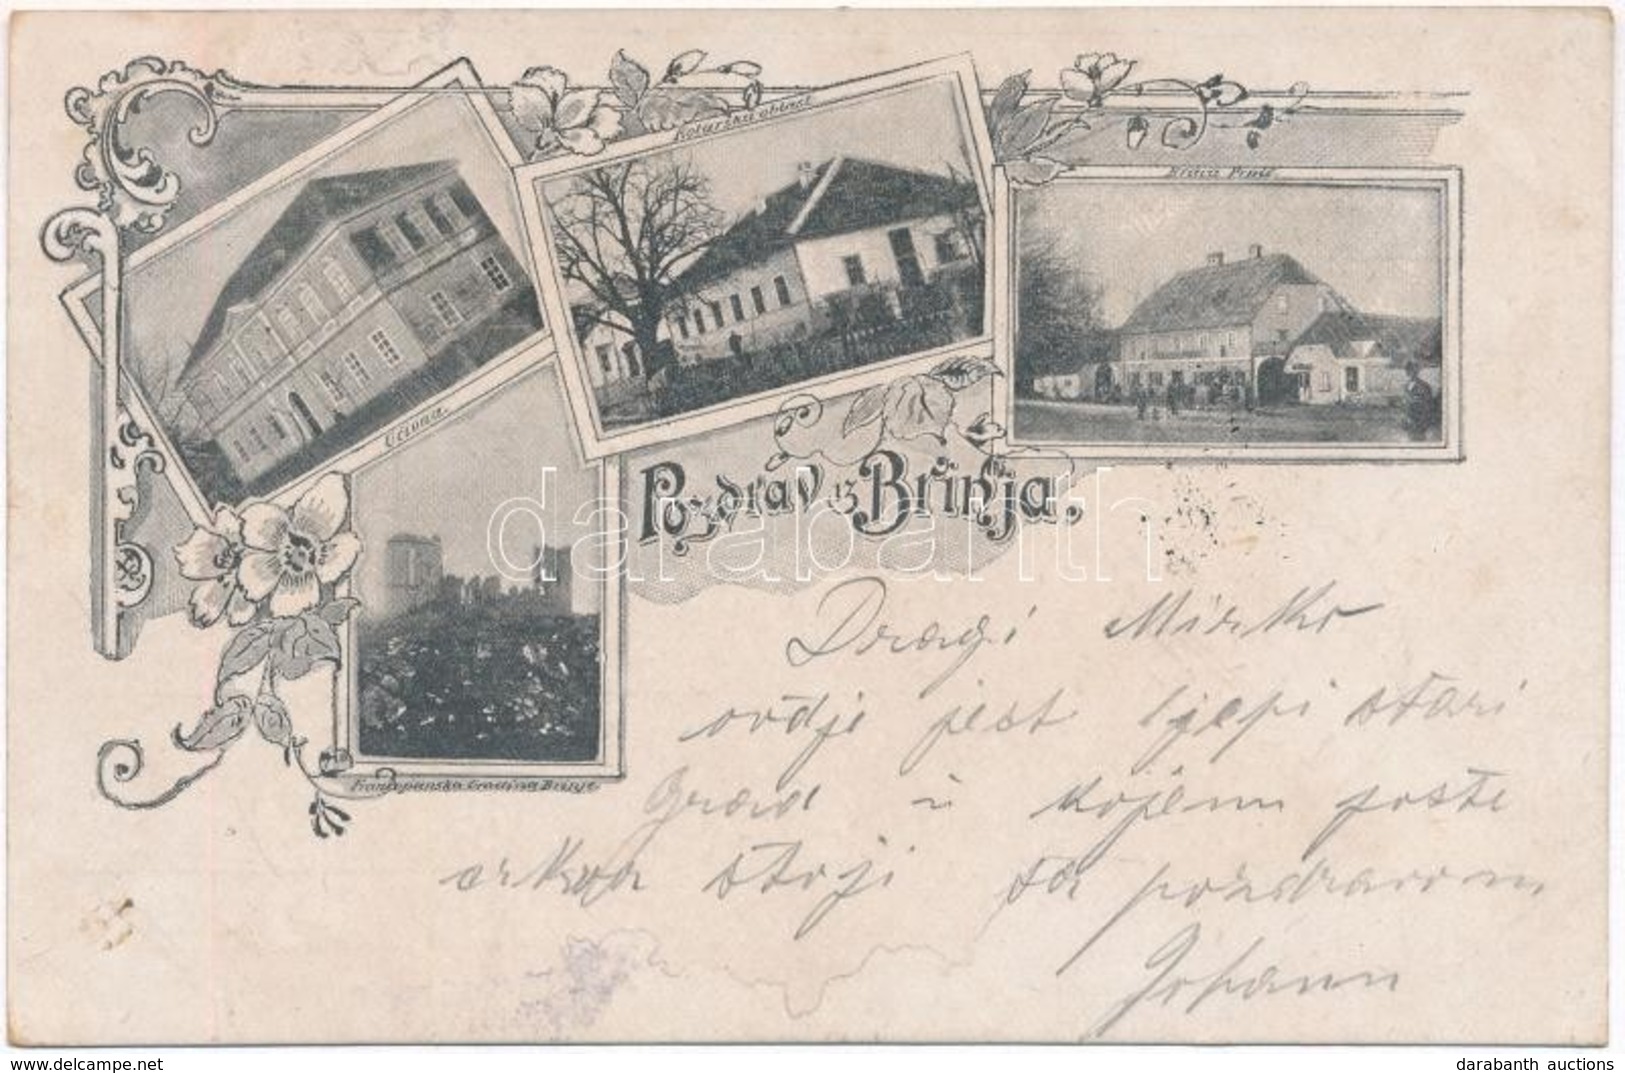 Kotarska oblast
Kuća Pruić
Učiona.
Pozdrav iz Brinja.
Frankopanska Gradina Brinje
Dragi Mirko
ovdje jest ljepi stari
Grad u kojemu poste
crkva stoji sa pozdravom
Johann
darabanth
www.delcampe.net
darabanth auctions